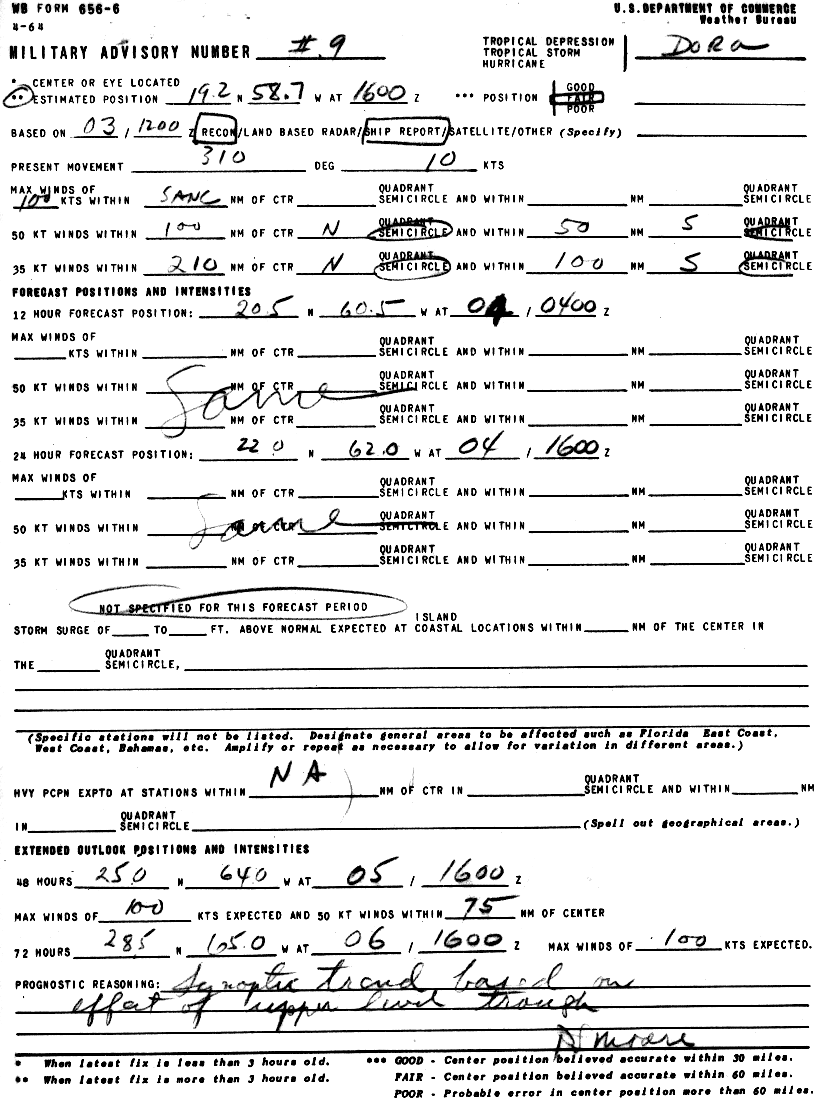 WB FORM 656-6 U.S. DEPARTMENT OF COMMERCE
4-64 Weather Bureau
MILITARY ADVISORY NUMBER #9 TROPICAL DEPRESSION Dora
TROPICAL STORM
HURRICANE
* CENTER OR EYE LOCATED
** ESTIMATED POSITION 19.2 N 58.7 W AT 1600 Z *** POSITION GOOD
FAIR
POOR
BASED ON 03 / 1200 Z RECON/LAND BASED RADAR/SHIP REPORT/SATELLITE/OTHER (Specify)
PRESENT MOVEMENT 310 DEG 10 KTS
MAX WINDS OF QUADRANT QUADRANT
100 KTS WITHIN NM OF CTR SEMICIRCLE AND WITHIN NM SEMICIRCLE
QUADRANT QUADRANT
50 KT WINDS WITHIN 100 NM OF CTR N SEMICIRCLE AND WITHIN 50 NM S SEMICIRCLE
QUADRANT QUADRANT
35 KT WINDS WITHIN 210 NM OF CTR N SEMICIRCLE AND WITHIN 100 NM S SEMICIRCLE
FORECAST POSITIONS AND INTENSITIES
12 HOUR FORECAST POSITION: 20.5 N 60.5 W AT 04 / 0400 Z
MAX WINDS OF QUADRANT QUADRANT
KTS WITHIN NM OF CTR SEMICIRCLE AND WITHIN NM SEMICIRCLE
QUADRANT QUADRANT
50 KT WINDS WITHIN NM OF CTR SEMICIRCLE AND WITHIN NM SEMICIRCLE
Same
QUADRANT QUADRANT
35 KT WINDS WITHIN NM OF CTR SEMICIRCLE AND WITHIN NM SEMICIRCLE
24 HOUR FORECAST POSITION: 22 0 N 62.0 W AT 04 / 1600 Z
MAX WINDS OF QUADRANT QUADRANT
KTS WITHIN NM OF CTR SEMICIRCLE AND WITHIN NM SEMICIRCLE
QUADRANT QUADRANT
50 KT WINDS WITHIN Same NM OF CTR SEMICIRCLE AND WITHIN NM SEMICIRCLE
QUADRANT QUADRANT
35 KT WINDS WITHIN NM OF CTR SEMICIRCLE AND WITHIN NM SEMICIRCLE
NOT SPECIFIED FOR THIS FORECAST PERIOD
ISLAND
STORM SURGE OF TO FT. ABOVE NORMAL EXPECTED AT COASTAL LOCATIONS WITHIN NM OF THE CENTER IN
QUADRANT
THE SEMICIRCLE,
(Specific stations will not be listed. Designate general areas to be affected such as Florida East Coast,
West Coast, Bahamas, etc. Amplify or repeat as necessary to allow for variation in different areas.)
NA
QUADRANT
HVY PCPN EXPTD AT STATIONS WITHIN NM OF CTR IN SEMICIRCLE AND WITHIN NM
QUADRANT
IN SEMICIRCLE (Spell out geographical areas.)
EXTENDED OUTLOOK POSITIONS AND INTENSITIES
48 HOURS 25.0 N 64.0 W AT 05 / 1600 Z
MAX WINDS OF 100 KTS EXPECTED AND 50 KT WINDS WITHIN 75 NM OF CENTER
72 HOURS 28.5 N 65.0 W AT 06 / 1600 Z MAX WINDS OF 100 KTS EXPECTED.
PROGNOSTIC REASONING: Synoptic trend based on
effect of upper level trough
Moore
* When latest fix is less than 3 hours old. *** GOOD - Center position believed accurate within 30 miles.
** When latest fix is more than 3 hours old. FAIR - Center position believed accurate within 60 miles.
POOR - Probable error in center position more than 60 miles.